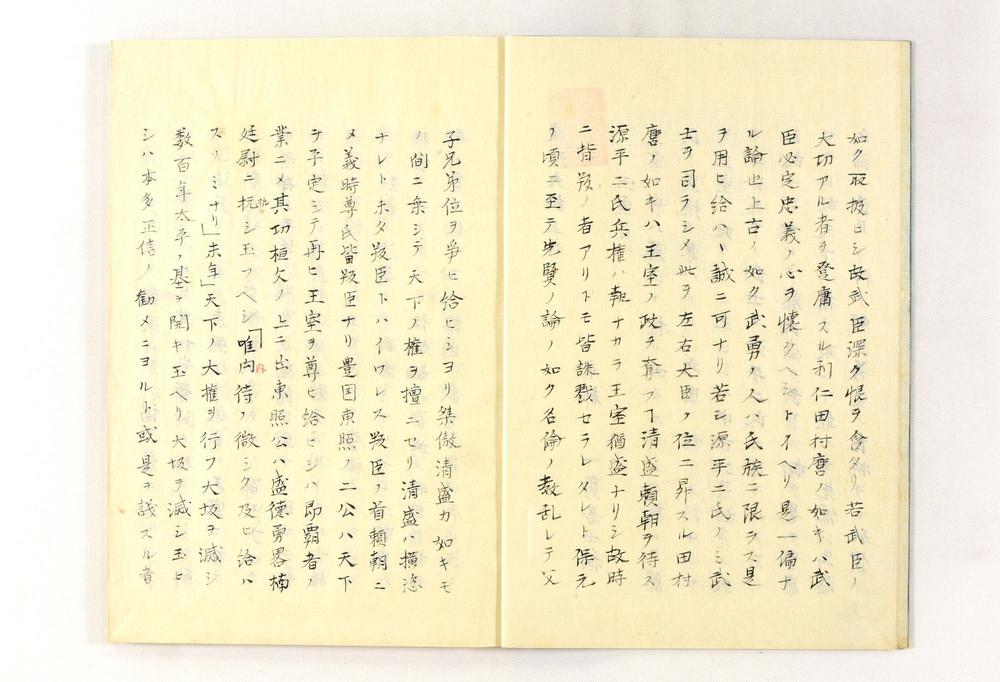 如ク取扱ヒシ故武臣深ク恨ヲ含タリ若武臣ノ
大切アル者ヲ登庸スル利仁田村麿ノ如キハ武
臣必定忠義ノ心ヲ懐クヘシトイヘリ是一偏ナ
ル論也上古ノ如ク武勇ノ人ハ氏族ニ限ラス是
ヲ用ヒ給ハヽ誠ニ可ナリ若シ源平二氏ノミ武
士ヲ司ラシメ此ヲ左右大臣ノ位ニ昇スル田村
麿ノ如キハ王室ノ政ヲ奪フヿ清盛頼朝ヲ待ス
源平二氏兵権ハ執ナカラ王室猶盛ナリシ故時
ニ皆叛ノ者アリトモ皆誅戮セラレタレト保元
ノ頃ニ至テ先賢ノ論ノ如ク名倫ノ教乱レテ父
子兄弟位ヲ爭ヒ給ヒシヨリ桀傲清盛カ如キモ
ノ間ニ乗シテ天下ノ権ヲ擅ニセリ清盛ハ横恣
ナレトホタ叛臣トハイワレス叛臣ノ首頼朝ニ
メ義時尊氏皆叛臣ナリ豊国東照ノ二公ハ天下
ヲ平定シテ再ヒ王室ヲ尊ヒ給ヒシハ即覇者ノ
業ニメ其功桓文ノ上ニ出東照公ハ盛徳勇畧楠
廷尉ニ抗シ玉フヘシ「唯内待ノ微シク及ヒ給ハ
スノミナリ」末年」天下ノ大権ヲ行フ大坂ヲ滅シ
数百年太平ノ基ヲ開キ玉ヘリ大坂ヲ滅シ玉ヒ
シハ本多正信ノ勧メニヨルト或是ヲ議スル者